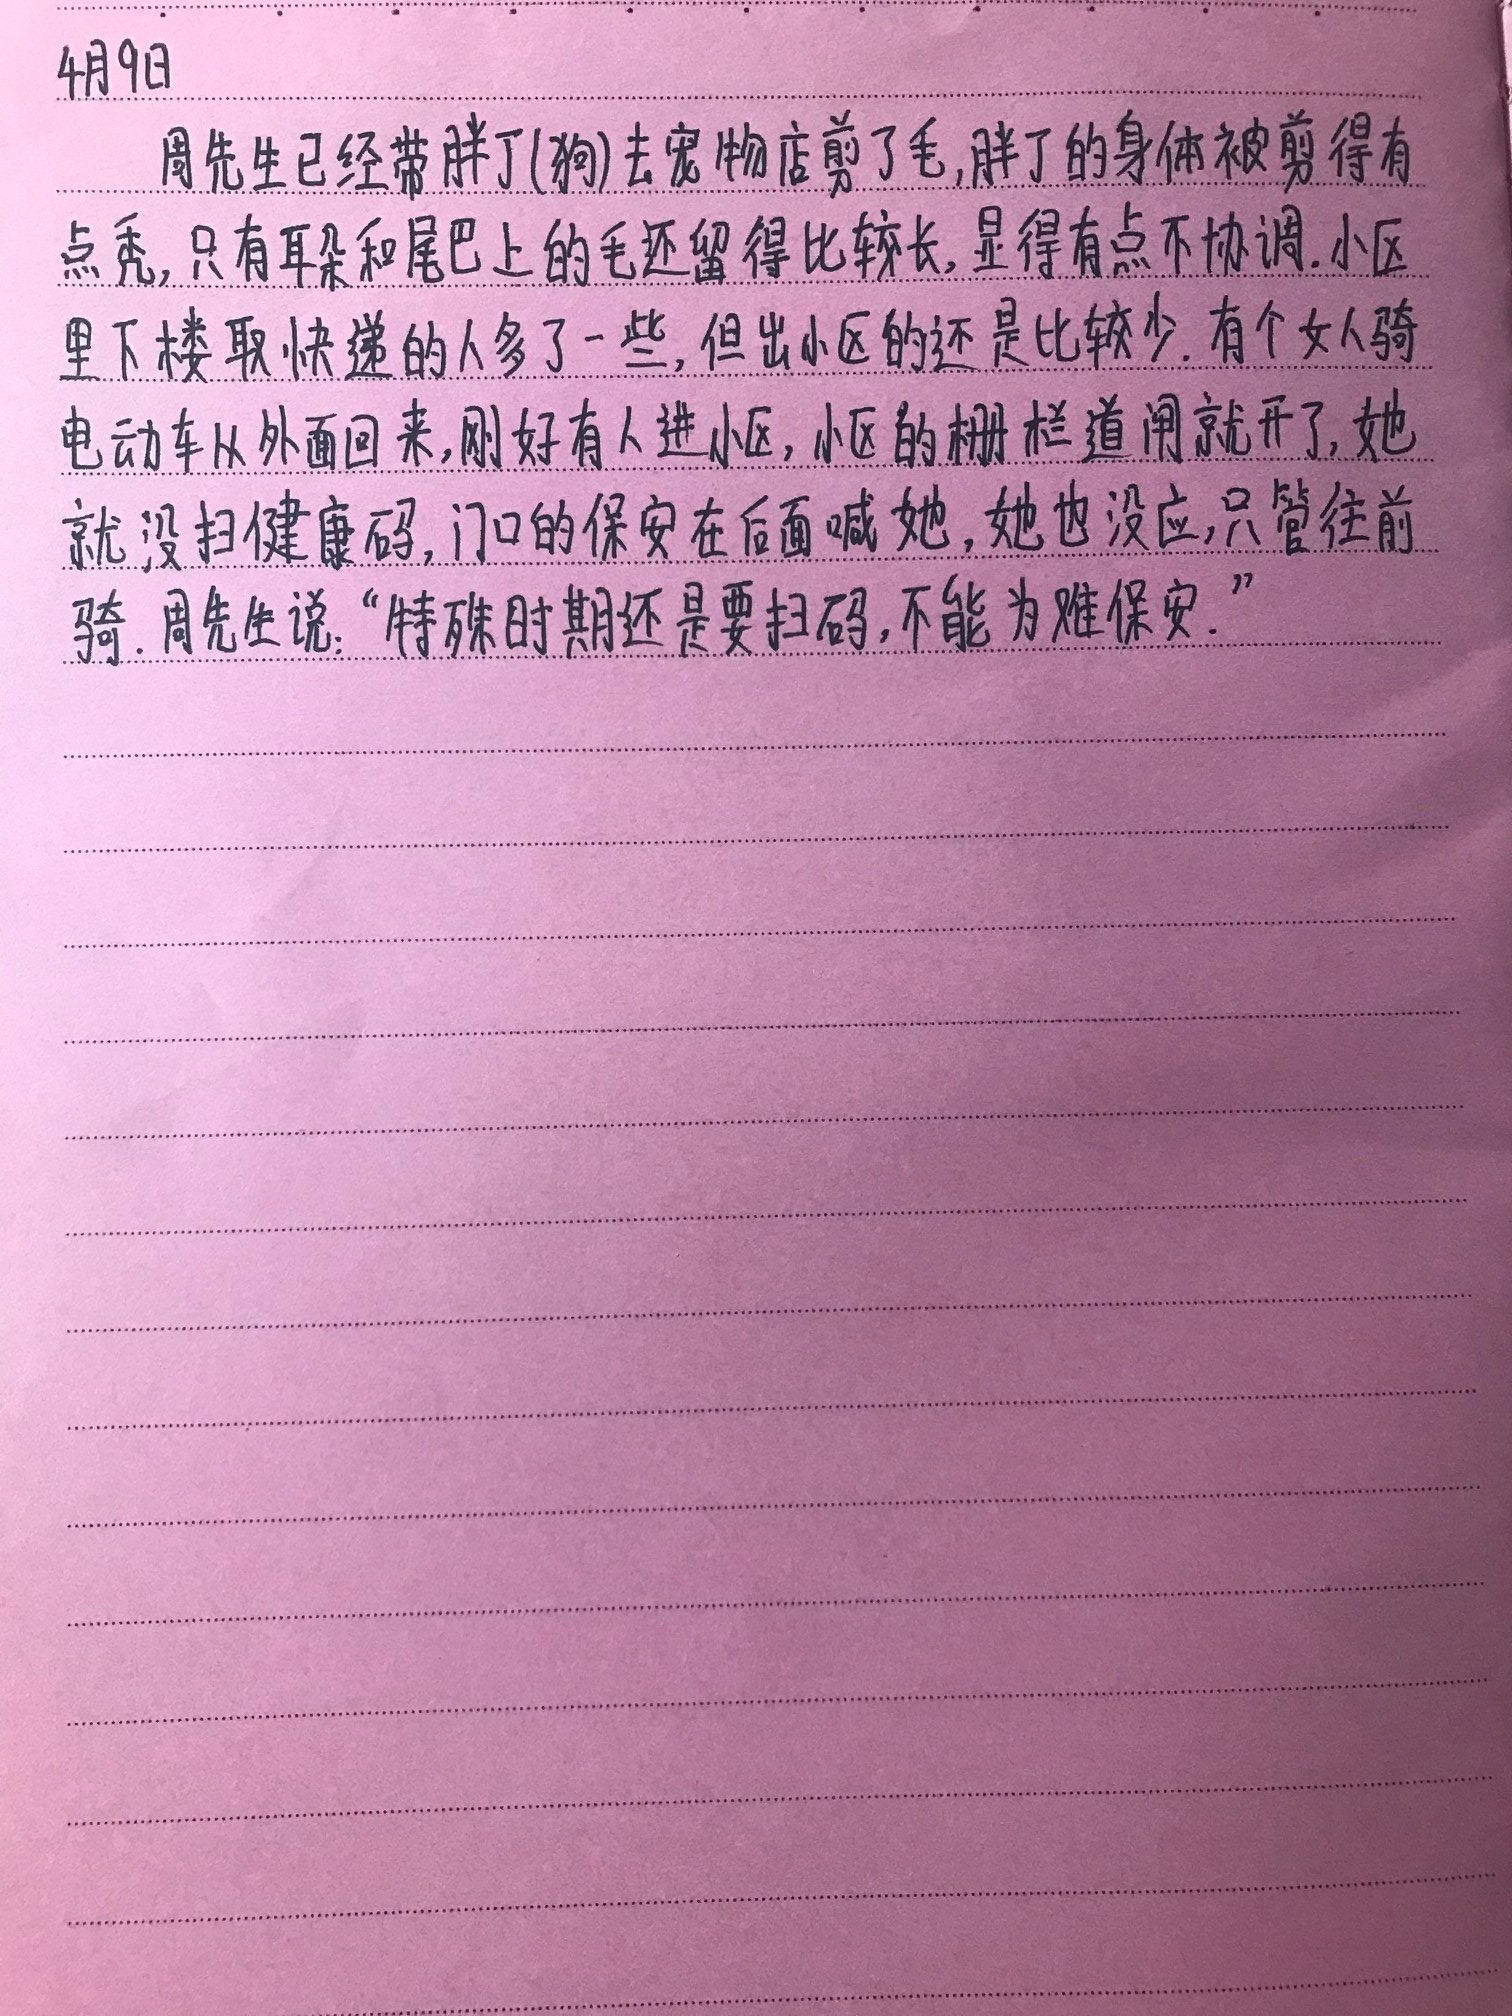 4月9日
周先生已经带胖丁(狗)去宠物店剪了毛,胖丁的身体被剪得有
点秃,只有耳朵和尾巴上的毛还留得比较长,显得有点不协调.小区
里下楼取快递的人多了一些,但出小区的还是比较少.有个女人骑
电动车从外面回来,刚好有人进小区,小区的栅栏道闸就开了,她
就没扫健康码,门口的保安在后面喊她,她也没应,只管往前
骑.周先生说:“特殊时期还是要扫码,不能为难保安.”